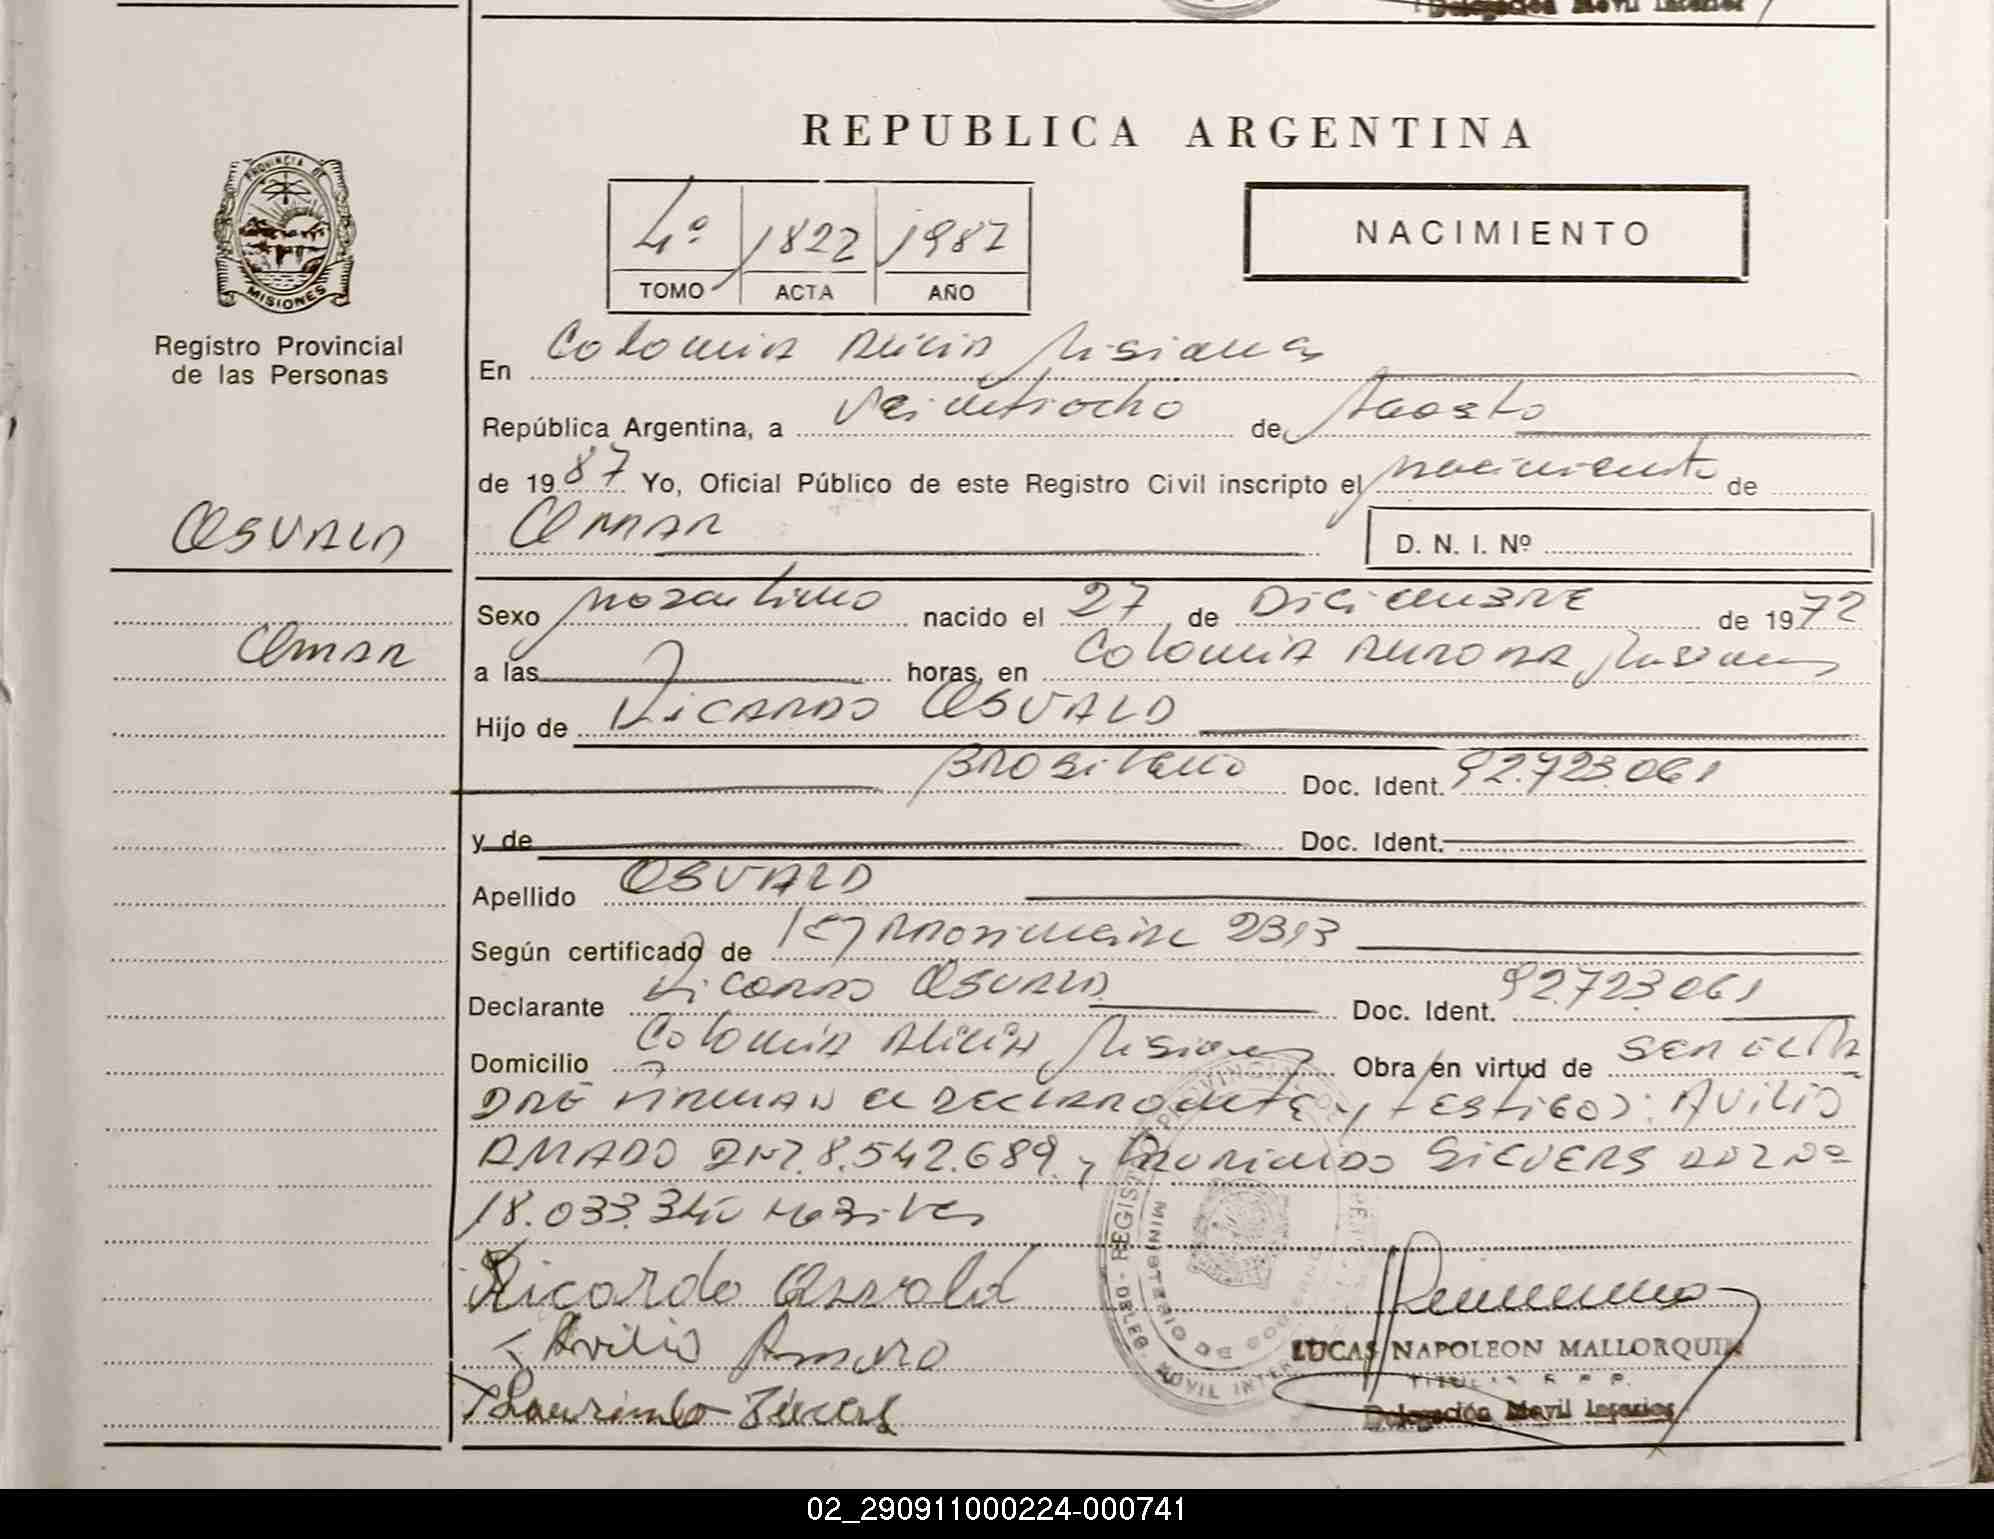 Delegación Movil Interior
REPUBLICA ARGENTINA
PROVINCIA DE
MISIONES
4º 1822 1987
TOMO ACTA AÑO
NACIMIENTO
Registro Provincial
de las Personas
En Colonia Alicia Misiones
República Argentina, a Veintiocho de Agosto
de 1987 Yo, Oficial Público de este Registro Civil inscripto el nacimiento de
OSVALD
Omar
D. N. I. Nº
Sexo masculino nacido el 27 de Diciembre de 1972
Omar
a las horas, en Colonia Aurora Misiones
Hijo de Ricardo OSVALD
Brasileño Doc. Ident. 92.723.061
y de Doc. Ident.
Apellido OSVALD
Según certificado de 2313
Declarante Ricardo OSVALD Doc. Ident. 92.723.061
Domicilio Colonia Alicia Misiones Obra en virtud de ser el Pa
dre firman el declarante y testigos: Avilio
AMADO DNI. 8.542.689 y Laurindo SIEVERS DNI Nº
18.033.340
Ricardo Osvald
Avilio
Laurindo
LUCAS NAPOLEON MALLORQUIN
Delegación Movil Interior
MINISTERIO DE GOBIERNO
02_290911000224-000741